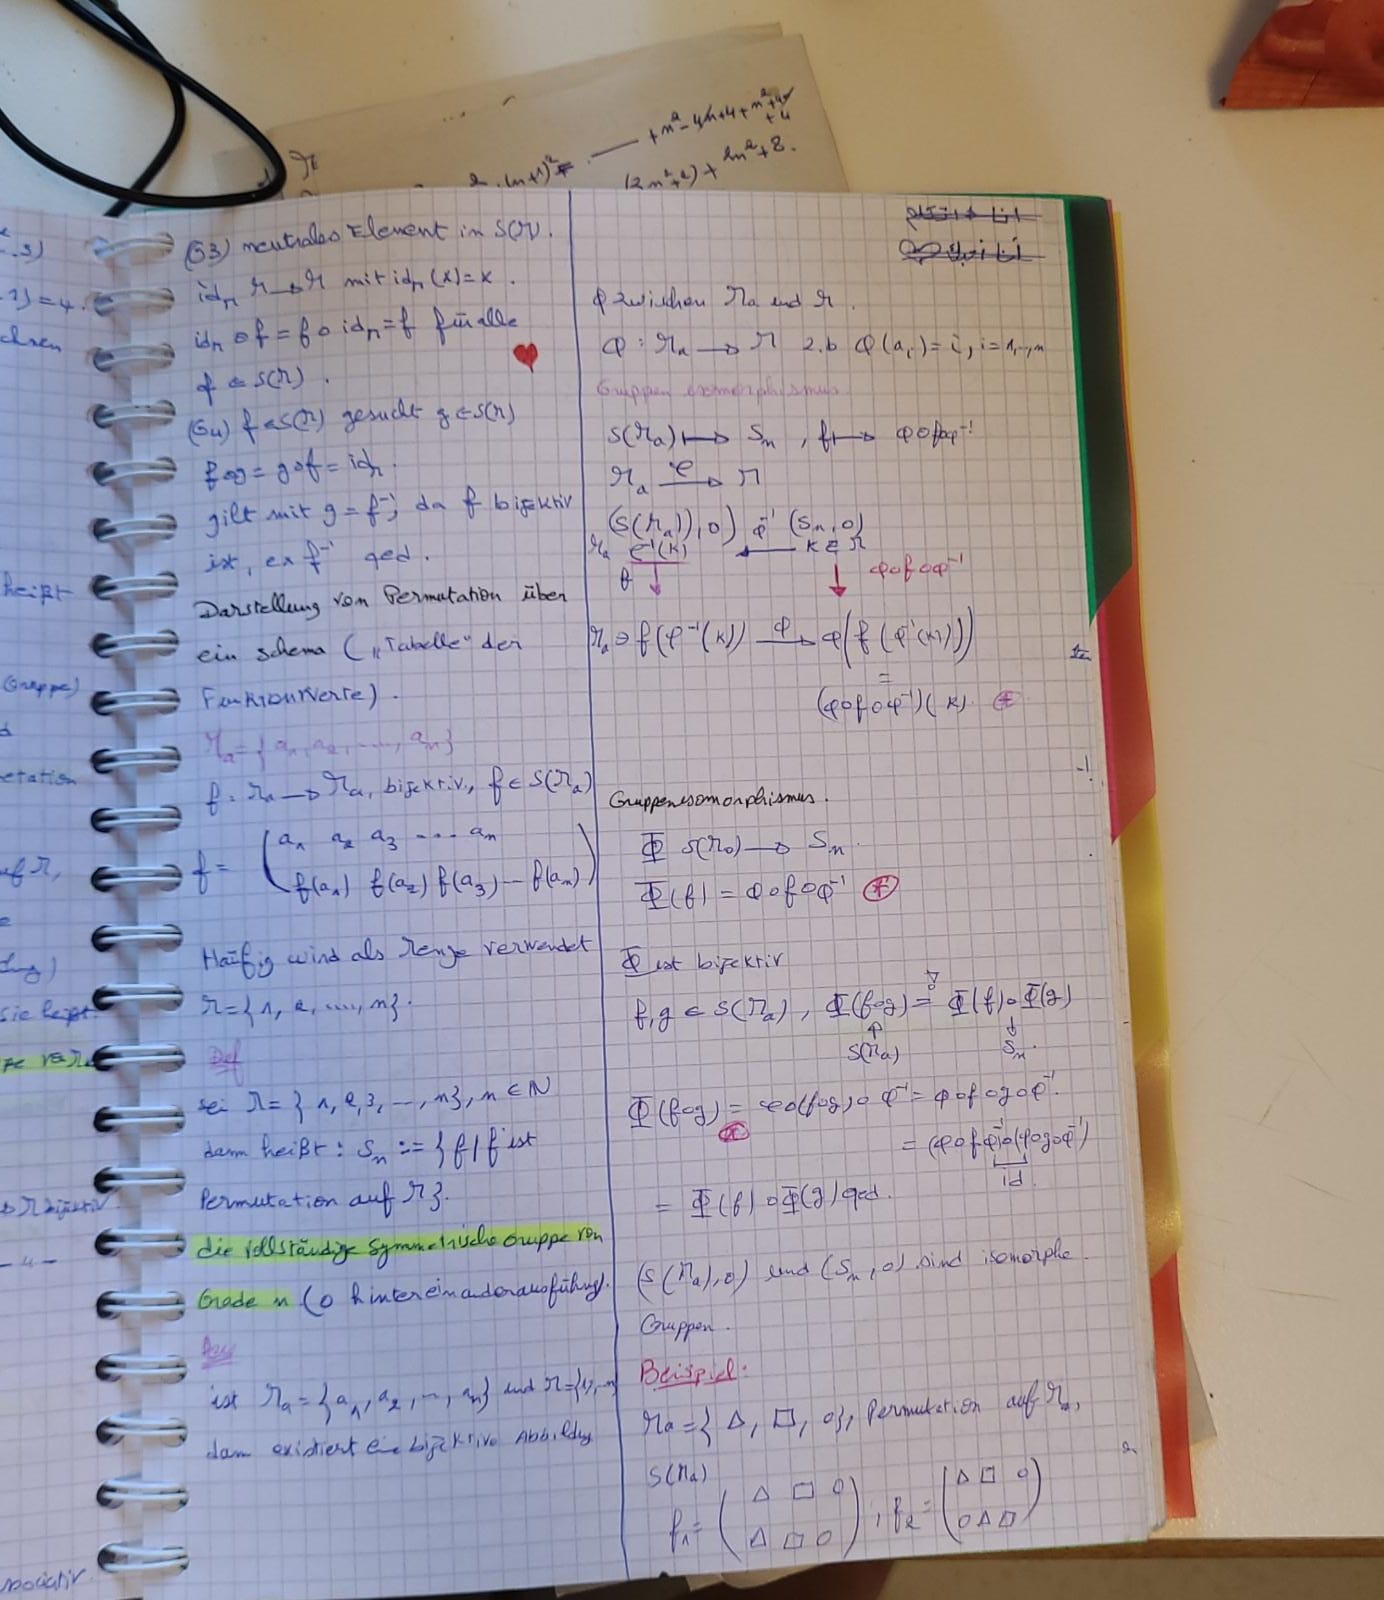 +n²-4n+4+n²+4n
+4
(n+1)² =
(2n²+2)+2n²+8.
(G3) neutrales Element in S(M).
id_M M → M mit id_M (x) = x.
id_M o f = f o id_M = f für alle
f ∈ S(M).
(G4) f ∈ S(M) gesucht g ∈ S(M)
f o g = g o f = id_M.
gilt mit g = f⁻¹, da f bijektiv
ist, ex f⁻¹ qed.
Darstellung von Permutation über
ein schema ("Tabelle" der
Funktionwerte).
M_a = {a₁, a₂, ...., a_n}
f: M_a → M_a, bijektiv, f ∈ S(M_a)
f = ( a₁ a₂ a₃ .... a_n
f(a₁) f(a₂) f(a₃) -- f(a_n) )
Häufig wird als Menge verwendet
M = {1, 2, ...., n}.
Def
sei M = {1, 2, 3, --, n}, n ∈ ℕ
dann heißt: S_n := {f / f ist
Permutation auf M}.
die vollständige Symmetrische Gruppe von
Grade n (o hintereinanderausführung).
ist M_a = {a₁, a₂, --, a_n} und M = {1, --, n}
dann existiert eine bijektive Abbildung
φ zwischen M_a und M.
φ: M_a → M z.b φ(a_i) = i, i = 1, --, n
Gruppen isomorphismus
S(M_a) ↦ S_n, f ↦ φ o f o φ⁻¹
M_a →φ M
(S(M_a), o) φ⁻¹ (S_n, o)
M_a φ⁻¹(k) ← k ∈ M
f ↓ ↓ φ o f o φ⁻¹
M_a ∋ f(φ⁻¹(k)) →φ φ(f(φ⁻¹(k)))
=
(φ o f o φ⁻¹)(k) ⊛
Gruppenisomorphismus.
Φ S(M_a) → S_n
Φ(f) = φ o f o φ⁻¹ ⊛
Φ ist bijektiv
f, g ∈ S(M_a), Φ(f o g) = Φ(f) o Φ(g)
S(M_a) S_n.
Φ(f o g) = φ o (f o g) o φ⁻¹ = φ o f o g o φ⁻¹.
= (φ o f o φ⁻¹) o (φ o g o φ⁻¹)
id.
= Φ(f) o Φ(g) qed.
(S(M_a), o) und (S_n, o) sind isomorphe
Gruppen.
Beispiel:
M_a = {△, □, o}, Permutation auf M_a,
S(M_a)
f₁ = ( △ □ o
△ □ o ), f₂ = ( △ □ o
o △ □ )